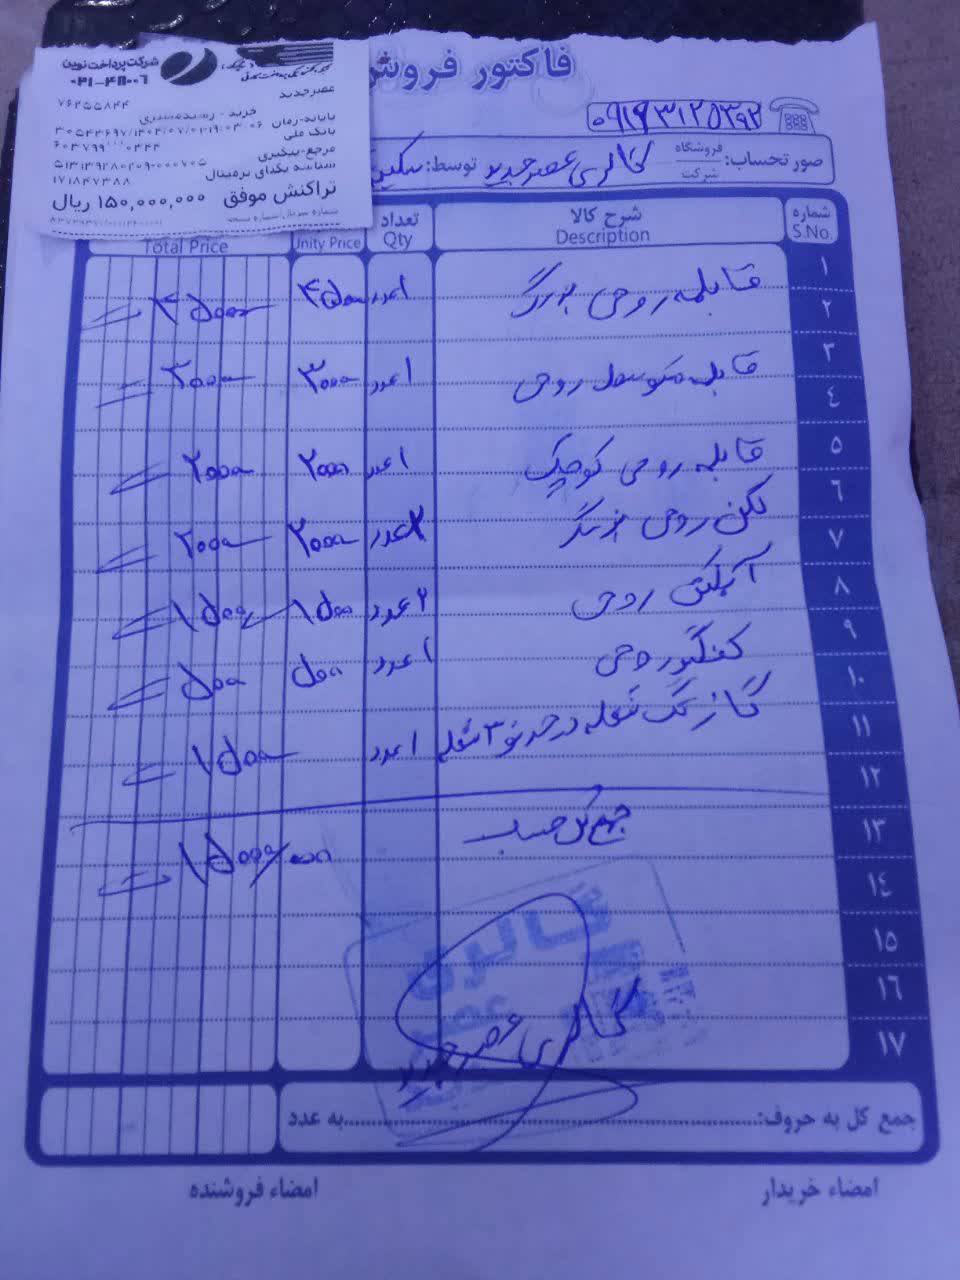 فاکتور فروش
شرکت پرداخت نوین
۰۲۱-۴۸۰۰۶
عصرجدید
۷۶۲۵۵۸۴۴
خرید - رسید مشتری
پایانه-زمان
بانک ملی
مرجع-پیگیری
شناسه یکتای ترمینال
۱۷۱۸۴۷۳۸۸
تراکنش موفق ۱۵۰,۰۰۰,۰۰۰ ریال
۰۹۱۹۳۱۲۵۳۹۲
صورتحساب: فروشگاه شرکت گالری عصر جدید توسط:
شماره S.No. شرح کالا Description تعداد Qty Unity Price Total Price
۱
قابلمه روحی بزرگ ۱عدد ۴۵۰۰۰ ۴۵۰۰۰
۲
۳
قابلمه متوسط روحی ۱عدد ۳۰۰۰۰ ۳۰۰۰۰
۴
۵
قابلمه روحی کوچک ۱عدد ۲۰۰۰۰ ۲۰۰۰۰
۶
لگن روحی بزرگ عدد ۲۰۰۰۰ ۲۰۰۰۰
۷
۸
آبکش روحی ۲عدد ۱۵۰۰۰ ۱۵۰۰۰
۹
کفگیر روحی ۱عدد ۵۰۰۰ ۵۰۰۰
۱۰
۱۱
گاز تک شعله در حد نو ۳ شعله ۱عدد ۱۵۰۰۰
۱۲
۱۳
جمع کل حساب ۱۵۰۰۰/۰۰۰
۱۴
۱۵
۱۶
۱۷
گالری عصر جدید
جمع کل به حروف: به عدد
امضاء خریدار امضاء فروشنده